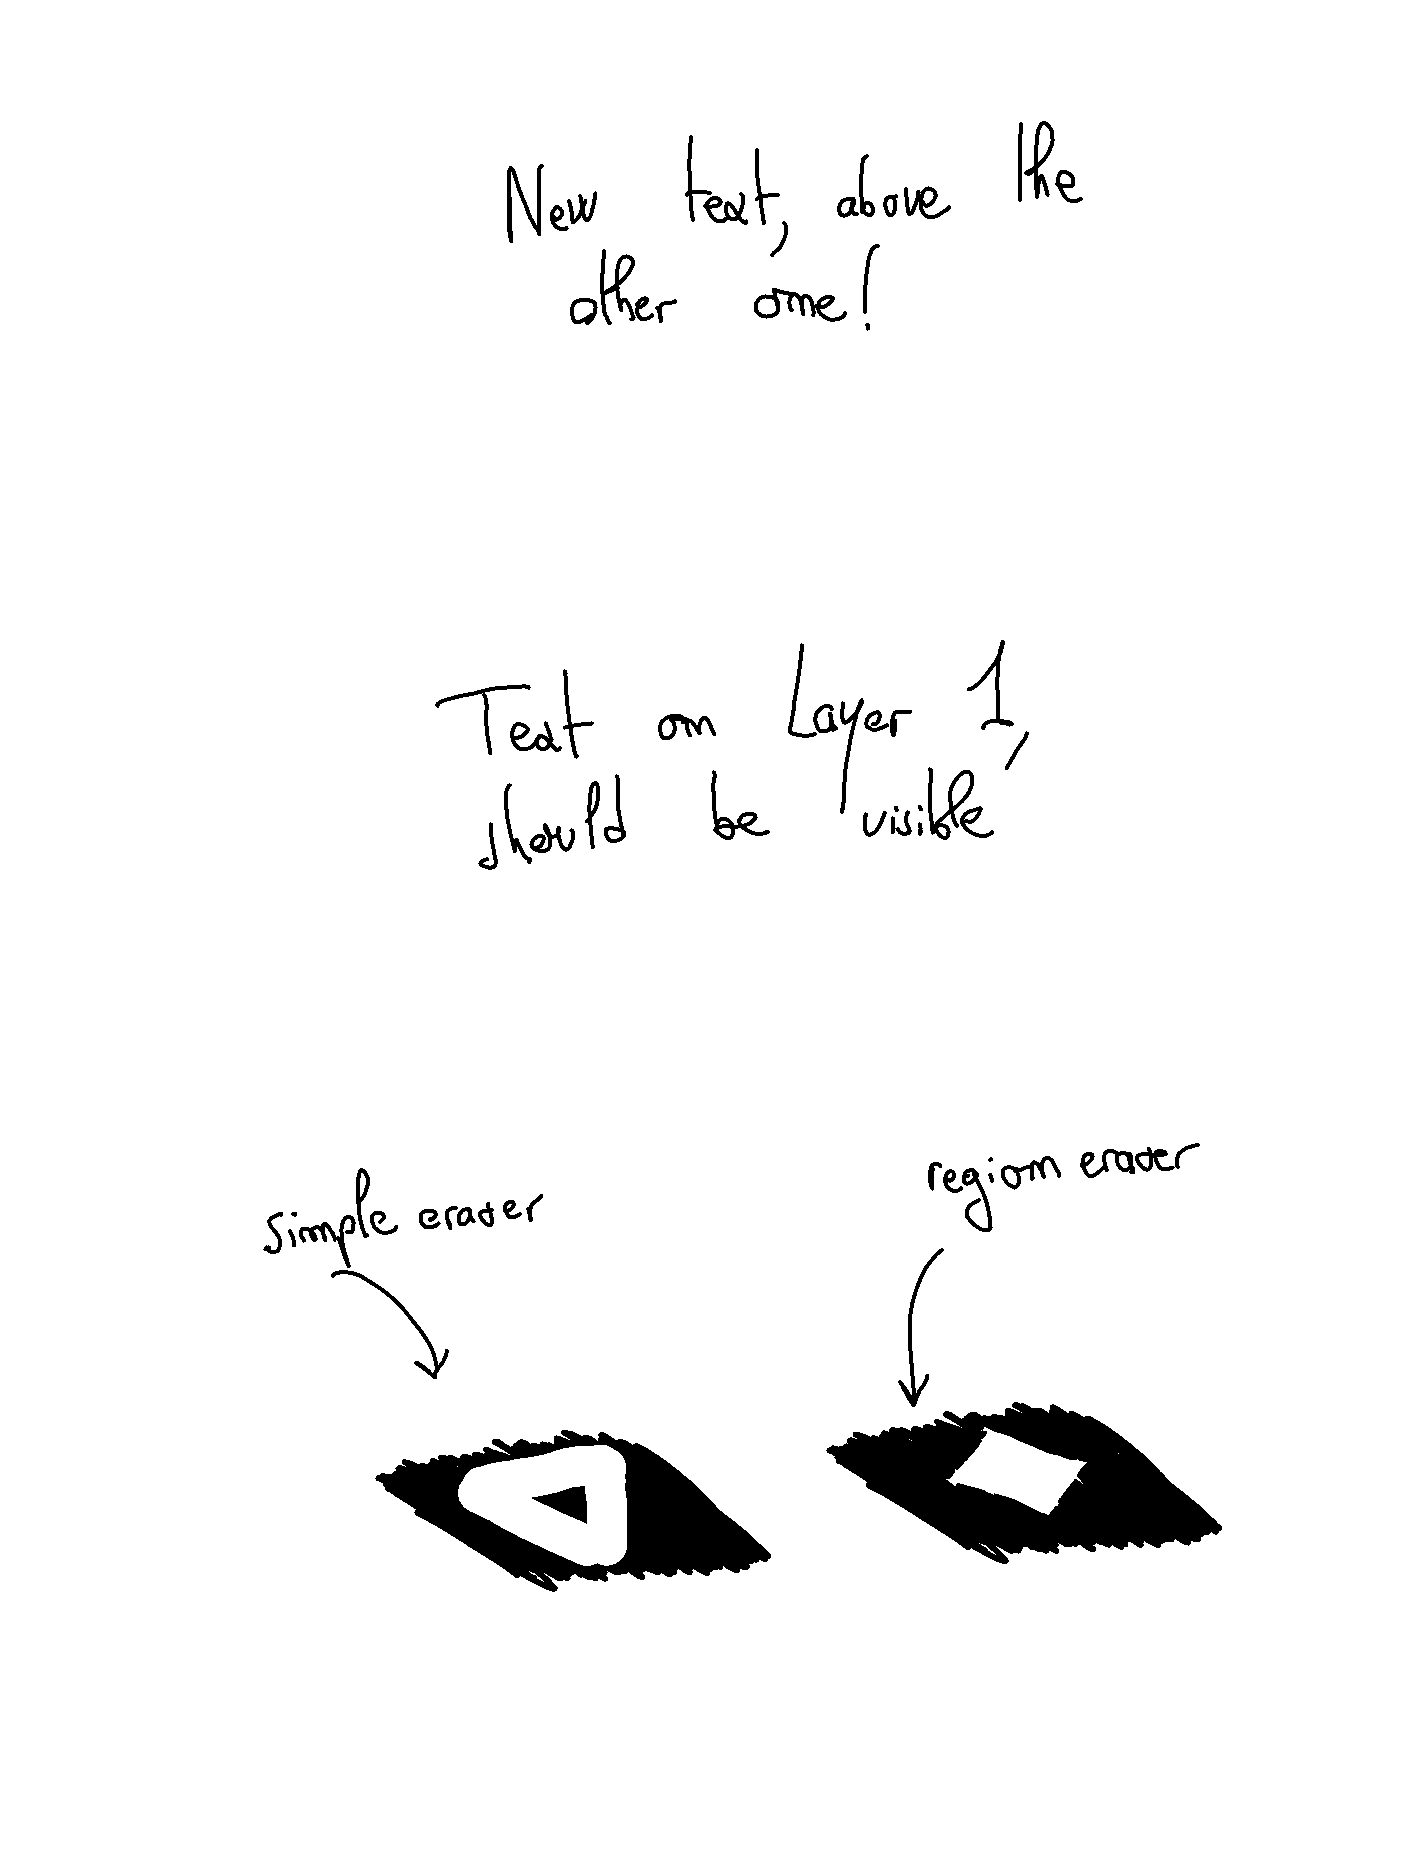 New text, above the
other one!
Text on Layer 1,
should be visible
simple eraser
region eraser